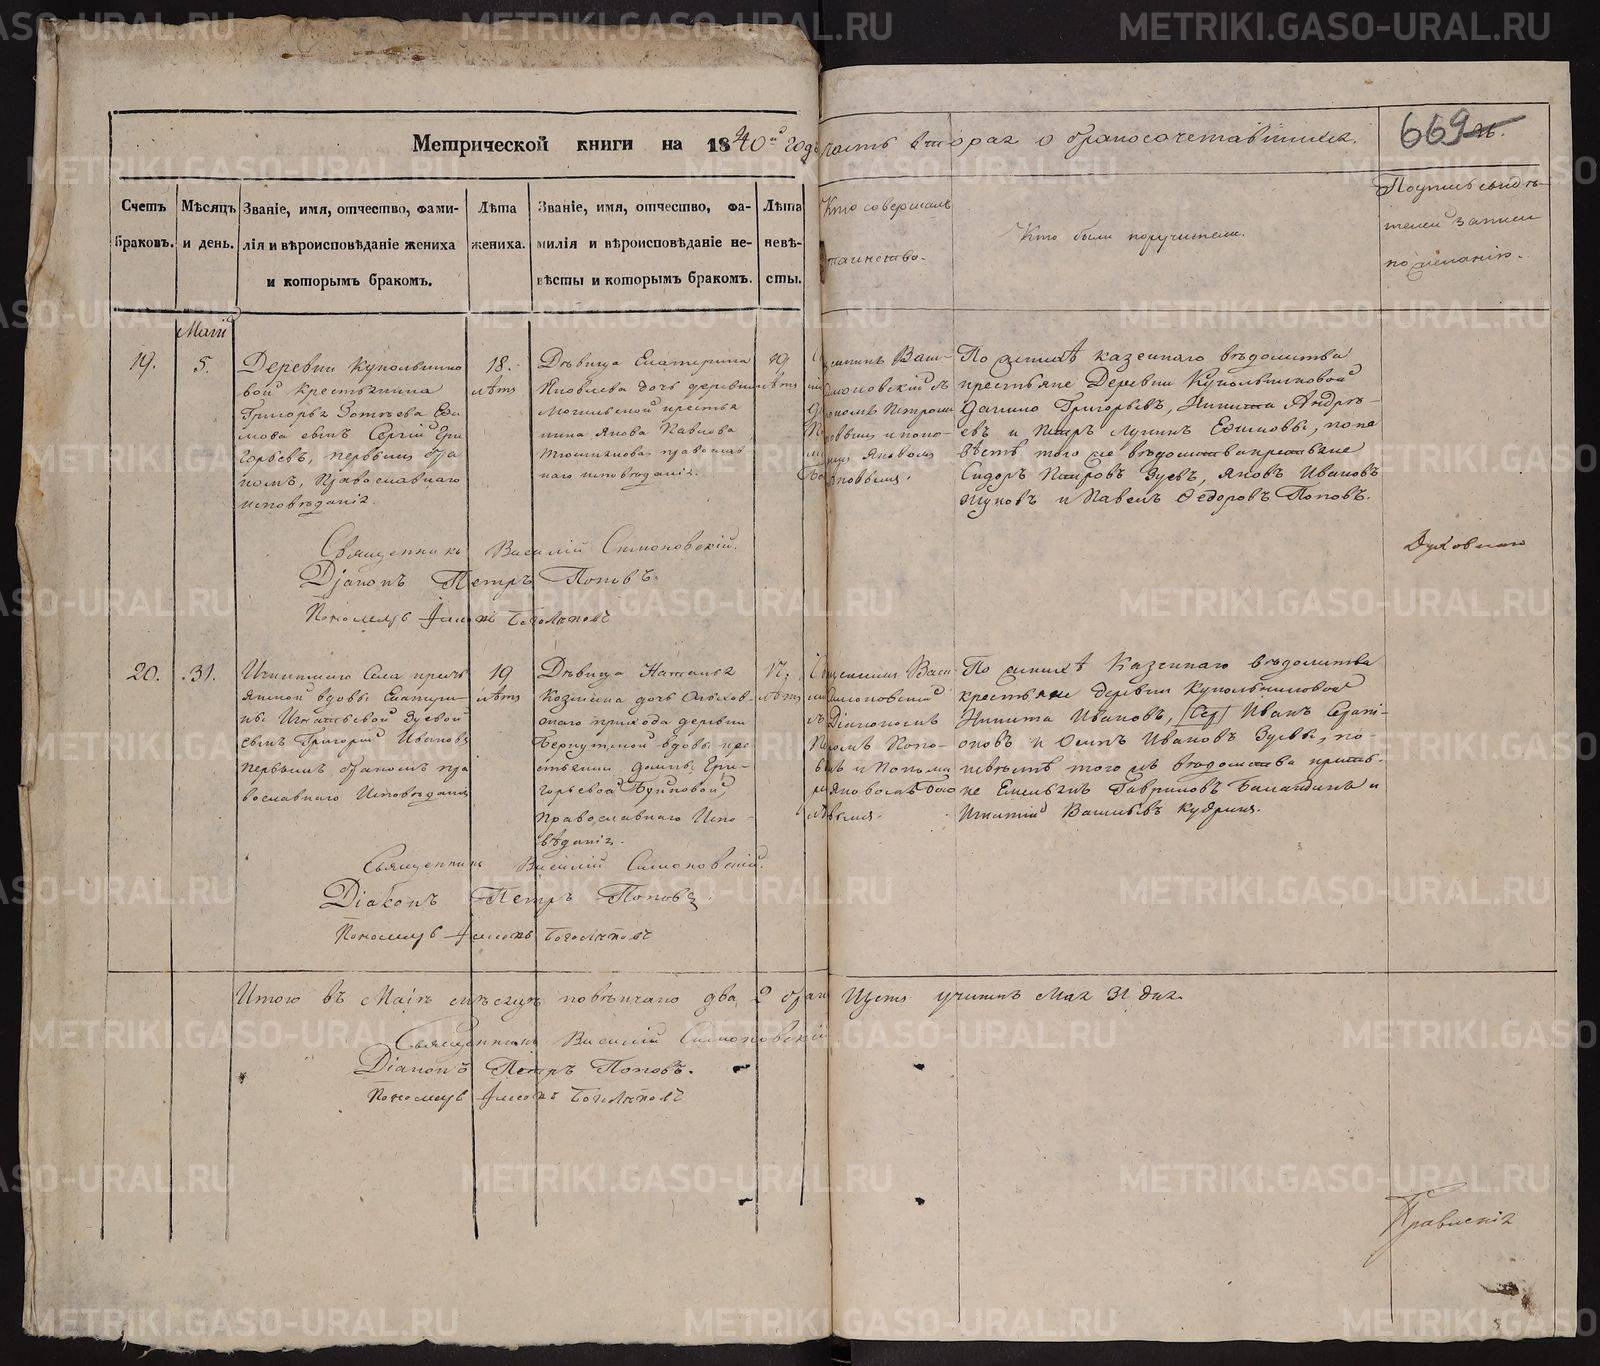 Метрической книги на 1840й годъ часть вторая о бракосочетавшихся.
669
Счетъ браковъ.
Мѣсяцъ и день.
Званіе, имя, отчество, фами-
лія и вѣроисповѣданіе жениха
и которымъ бракомъ.
Лѣта
жениха.
Званіе, имя, отчество, фа-
милія и вѣроисповѣданіе не-
вѣсты и которымъ бракомъ.
Лѣта
невѣ-
сты.
Кто совершалъ
таинство.
Кто были поручители.
Подпись свидѣ-
телей записи
по желанію.
Маій
19.
5.
Деревни Кукольнико
вой крестьянина
Григорья Зотѣева Еки
мова сынъ Сергій Гри
горьевъ, первымъ бра
комъ, Православнаго
исповѣданія.
18.
лѣтъ
Дѣвица Екатерина
Яковлева дочь деревни
Могильской крестья
нина Якова Павлова
православ
наго исповѣданія.
19
лѣтъ
Священникъ Васи-
лій Симоновскій съ
Діакономъ Петромъ
Поповымъ и поно-
Яковомъ
По женихѣ казеннаго вѣдомства
крестьяне Деревни Кукольниковой
Данило Григорьевъ, Никита Андре-
евъ и Петръ Лукинъ Екимовы, по не
вѣстѣ того же вѣдомства крестьяне
Сидоръ Петровъ Зуевъ, Яковъ Ивановъ
Жуковъ и Павелъ Федоровъ Поповъ.
Священникъ Василій Симоновскій.
Діаконъ Петръ Поповъ.
Пономарь Яковъ Боголѣповъ
Духовнаго
20.
31.
села кресть
янской вдовы Екатери-
ны Игнатьевой Зуевой
сынъ Григорій Ивановъ
первымъ бракомъ пра
вославнаго Исповѣданія
19
лѣтъ
Дѣвица Наталья
Козмина дочь Ольхов-
скаго прихода деревни
вдовы кре-
стьянки Домны Гри-
горьевой
православнаго Испо-
вѣданія.
17.
лѣтъ
Священникъ Васи
лій Симоновскій
съ Діакономъ
Петромъ Попо-
вымъ и Понома
ремъ Яковомъ Бого
лѣповымъ.
По женихѣ Казеннаго вѣдомства
крестьяне деревни Кукольниковой
Никита Ивановъ, [Сер] Иванъ Серапі-
оновъ и Осипъ Ивановъ Зуевы, по
невѣстѣ того жъ вѣдомства крестья-
не Емельянъ Гавриловъ Баландинъ и
Игнатій Васильевъ Кудринъ.
Священникъ Василій Симоновскій.
Діаконъ Петръ Поповъ.
Пономарь Яковъ Боголѣповъ
Итого въ Маіѣ мѣсяцѣ повѣнчано два 2 брака учтенъ Мая 31 дня.
Священникъ Василій Симоновскій
Діаконъ Петръ Поповъ.
Пономарь Яковъ Боголѣповъ
Правленія
METRIKI.GASO-URAL.RU